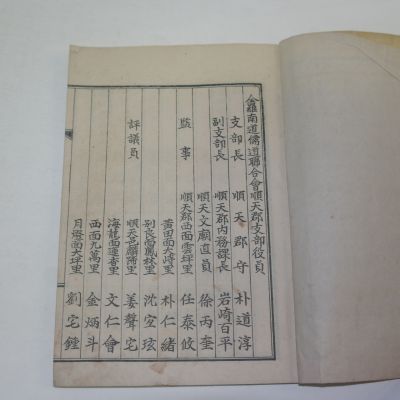 全羅南道儒道聯合會順天郡支部役員
支部長 順天郡守 朴道淳
副支部長 順天郡內務課長 岩崎百平
順天文廟直員 徐丙奎
監事 順天郡西面雲坪里 任泰攸
黃田面大峙里 朴仁緖
別良面鳳林里 沈宜玹
評議員 順天邑麟蹄里 姜聲宅
海龍面道香里 文仁會
西面九萬里 金炳斗
月燈面大坪里 劉宅鍾